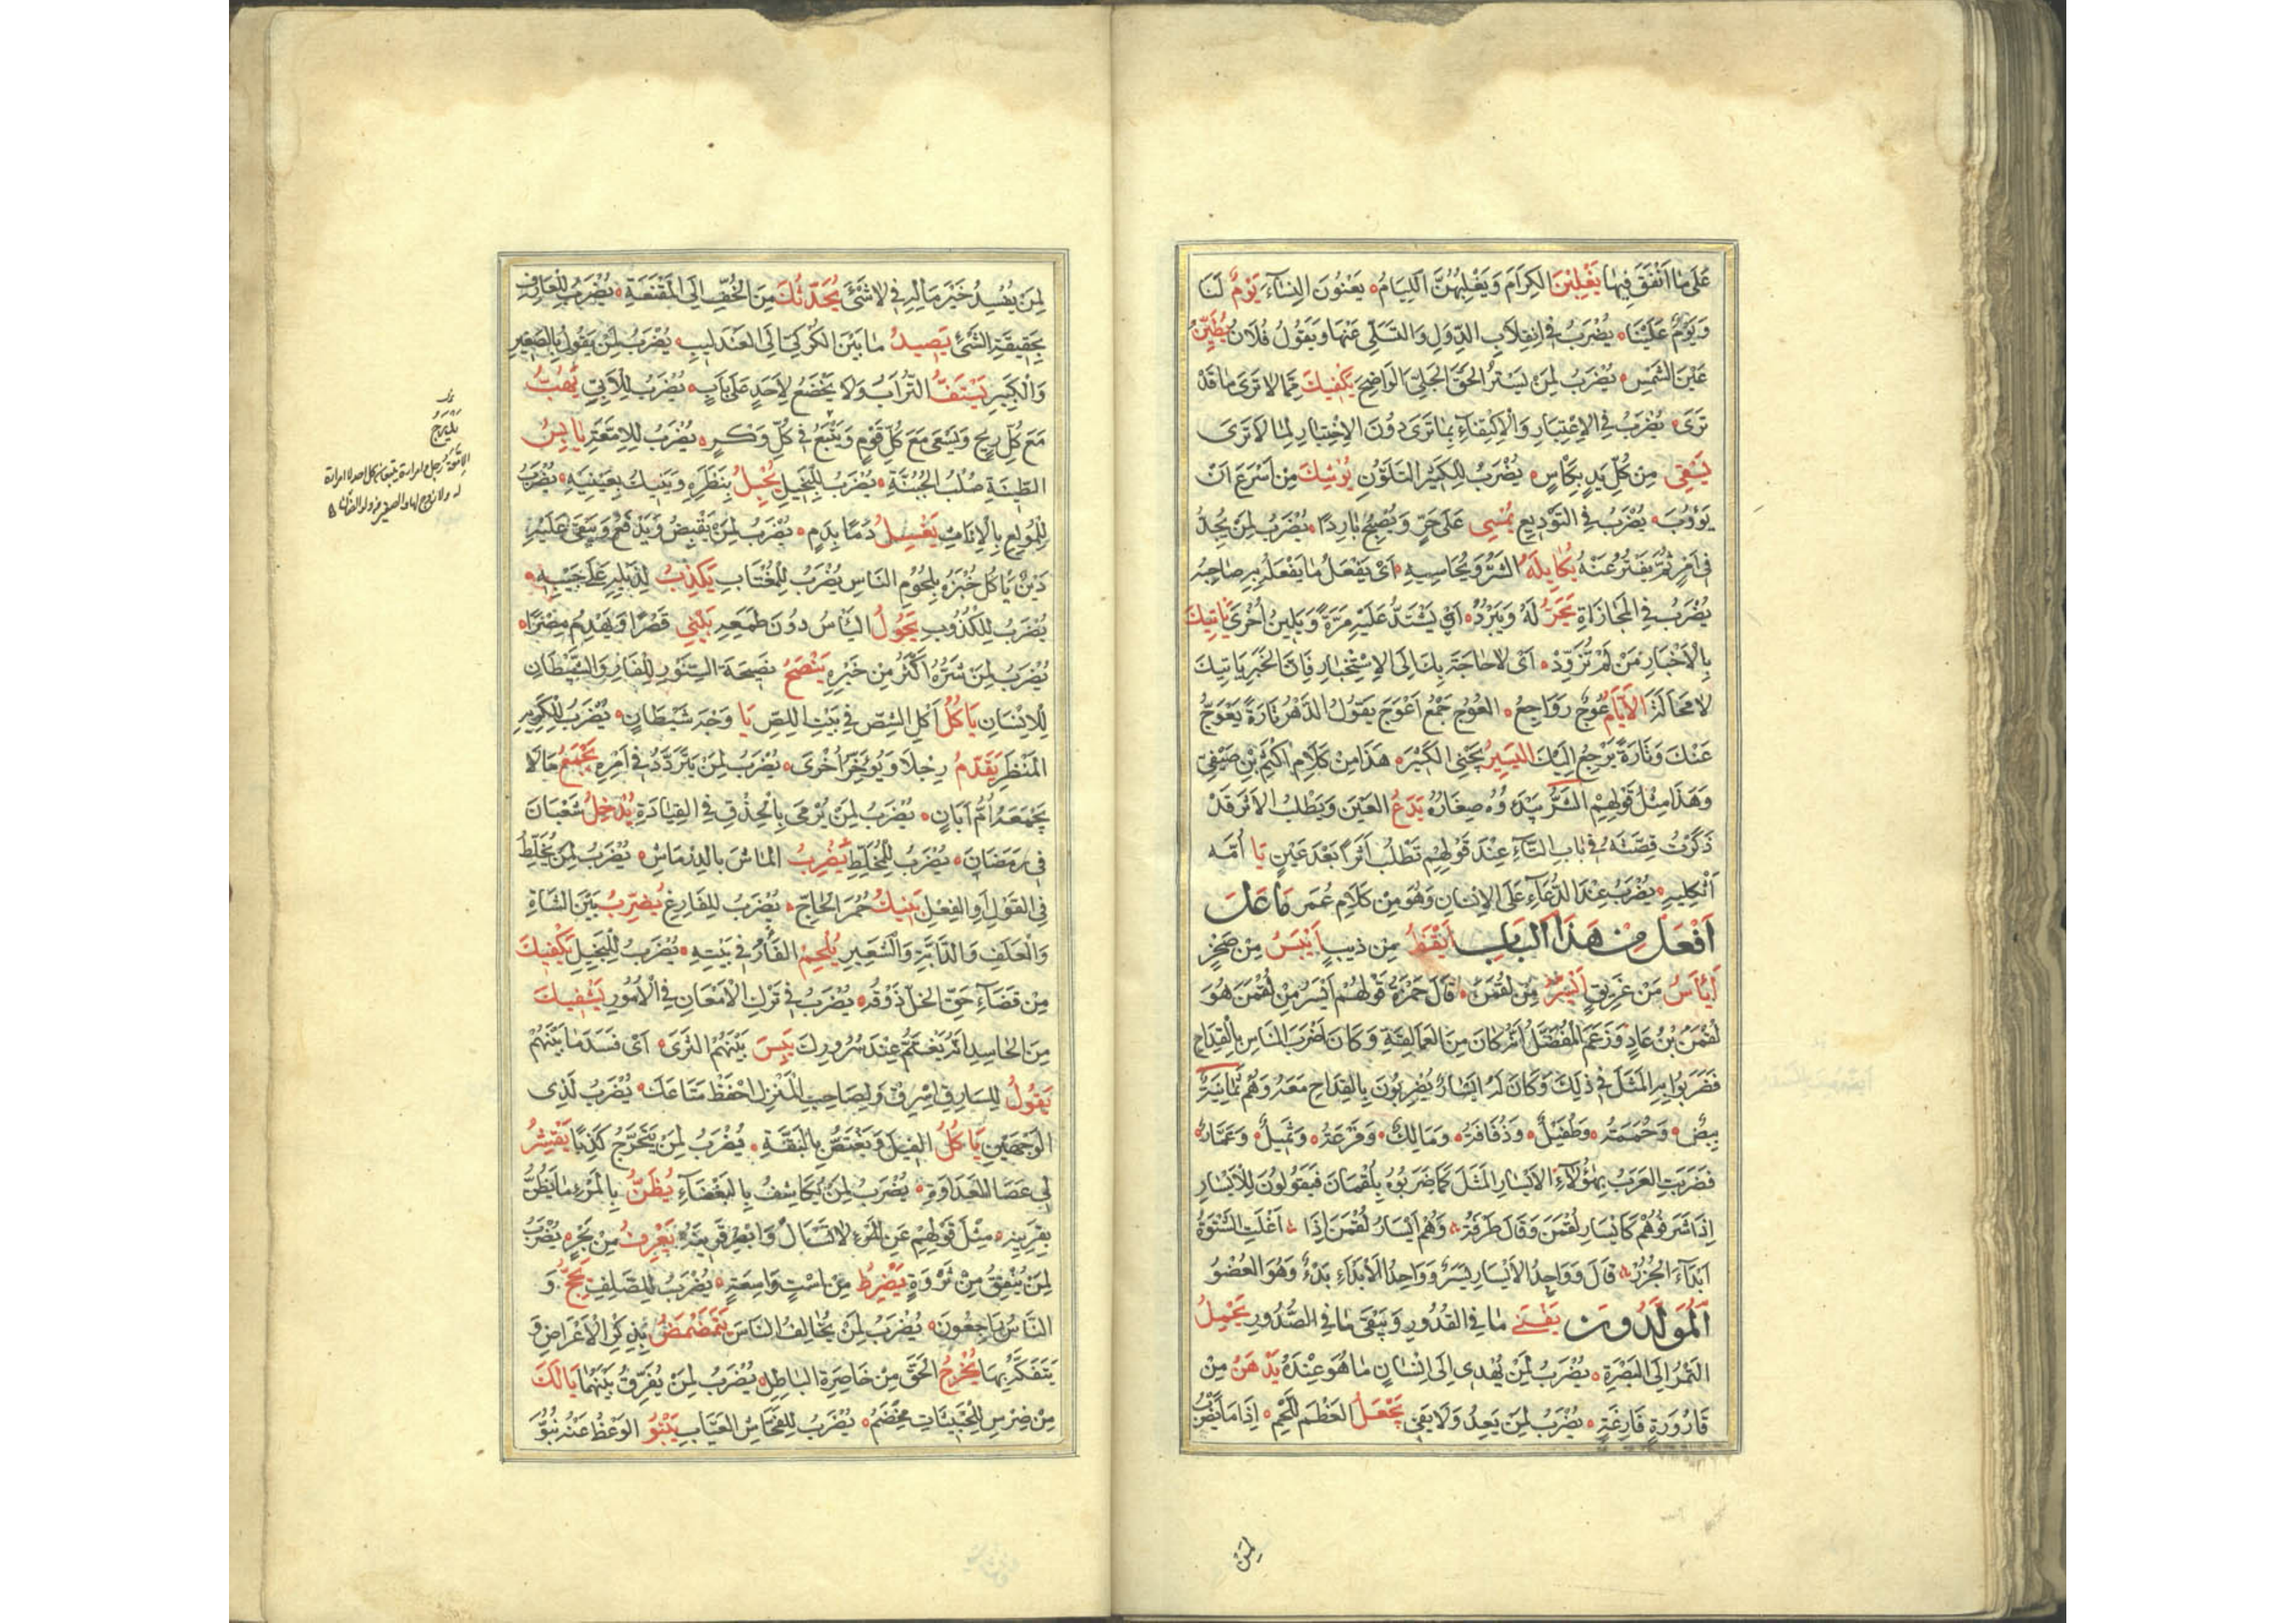 عَلَى مَا أَنْفَقَ فِيهَا يَغْلِبْنَ الْكِرَامَ وَيَغْلِبُهُنَّ اللِّيَامُ يَعْنُونَ النِّسَاءَ يَوْمٌ لَنَا
وَيَوْمٌ عَلَيْنَا يُضْرَبُ فِي انْقِلَابِ الدُّوَلِ وَالتَّسَلِّي عَنْهَا وَيَقُولُ فُلَانٌ يُطَيِّنُ
عَيْنَ الشَّمْسِ يُضْرَبُ لِمَنْ يَسْتُرُ الْحَقَّ الْجَلِيَّ الْوَاضِحَ يَكْفِيكَ مِمَّا لَا تَرَى مَا قَدْ
تَرَى يُضْرَبُ فِي الْاِعْتِبَارِ وَالْاِكْتِفَاءِ بِمَا تَرَى دُونَ الْاِخْتِبَارِ لِمَا لَا تَرَى
يَسْقِي مِنْ كُلِّ يَدٍ بِكَأْسٍ يُضْرَبُ لِلْكَثِيرِ التَّلَوُّنِ يُوشِكُ مَنْ أَسْرَعَ أَنْ
يَؤُوبَ يُضْرَبُ فِي التَّوْدِيعِ يُمْسِي عَلَى حَرٍّ وَيُصْبِحُ بَارِدًا يُضْرَبُ لِمَنْ يَجِدُّ
فِي أَمْرٍ ثُمَّ يَفْتُرُ عَنْهُ يُكَايِلُهُ الشَّرَّ وَيُحَاسِيهِ أَيْ يَفْعَلُ مَا يَفْعَلُ بِهِ صَاحِبُهُ
يُضْرَبُ فِي الْمُجَازَاةِ يَحَرُّ لَهُ وَيَبْرُدُ أَيْ يَشْتَدُّ عَلَيْهِ مَرَّةً وَيَلِينُ أُخْرَى يَأْتِيكَ
بِالْأَخْبَارِ مَنْ لَمْ تُزَوِّدْ أَيْ لَا حَاجَةَ بِكَ إِلَى الْاِسْتِخْبَارِ فَإِنَّ الْخَبَرَ يَأْتِيكَ
لَا مَحَالَةَ الْأَيَّامُ عُوجٌ رَوَاجِعُ الْعُوجُ جَمْعُ أَعْوَجَ يَقُولُ الدَّهْرُ تَارَةً يَعْوَجُّ
عَنْكَ وَتَارَةً يَرْجِعُ إِلَيْكَ الْيَسِيرُ يَجْنِي الْكَثِيرَ هَذَا مِنْ كَلَامِ أَكْثَمَ بْنِ صَيْفِيٍّ
وَهَذَا مِثْلُ قَوْلِهِمْ الشَّرُّ يَبْدَؤُهُ صِغَارُهُ يَدَعُ الْعَيْنَ وَيَطْلُبُ الْأَثَرَ قَدْ
ذَكَرْتُ قِصَّتَهُ فِي بَابِ التَّاءِ عِنْدَ قَوْلِهِمْ تَطْلُبُ أَثَرًا بَعْدَ عَيْنٍ يَا أُمَّهْ
اثْكَلِيهِ يُضْرَبُ عِنْدَ الدُّعَاءِ عَلَى الْإِنْسَانِ وَهُوَ مِنْ كَلَامِ عُمَرَ مَا عَلَى
أَفْعَلَ مِنْ هَذَا الْبَابِ أَيْقَظُ مِنْ ذِيبٍ أَيْبَسُ مِنْ صَخْرٍ
أَيْأَسُ مِنْ غَرِيقٍ أَيْسَرُ مِنْ لُقْمَنَ قَالَ حَمْزَةُ قَوْلُهُمْ أَيْسَرُ مِنْ لُقْمَنَ هُوَ
لُقْمَنُ بْنُ عَادٍ وَزَعَمَ الْمُفَضَّلُ أَنَّهُ كَانَ مِنَ الْعَمَالِقَةِ وَكَانَ أَضْرَبَ النَّاسِ بِالْقِدَاحِ
فَضَرَبُوا بِهِ الْمَثَلَ فِي ذَلِكَ وَكَانَ لَهُ أَيْسَارٌ يَضْرِبُونَ بِالْقِدَاحِ مَعَهُ وَهُمْ ثَمَانِيَةٌ
بِيضٌ وَحُمَمَةُ وَطُفَيْلٌ وَذُفَافَةُ وَمَالِكٌ وَفَرْعَةُ وَثُمَيْلٌ وَعَمَّارٌ
فَضَرَبَتِ الْعَرَبُ بِهَؤُلَاءِ الْأَيْسَارِ الْمَثَلَ كَمَا ضَرَبُوهُ بِلُقْمَانَ فَيَقُولُونَ لِلْأَيْسَارِ
إِذَا شَرَّفُوهُمْ كَأَيْسَارِ لُقْمَنَ وَقَالَ طَرَفَةُ وَهُمُ أَيْسَارُ لُقْمَنَ إِذَا أَغْلَتِ الشَّتْوَةُ
أَبْدَاءَ الْجُزُرْ قَالَ وَوَاحِدُ الْأَيْسَارِ يَسَرٌ وَوَاحِدُ الْأَبْدَاءِ بَدْءٌ وَهُوَ الْعُضْوُ
الْمُوَلَّدُونَ يَفْنَى مَا فِي الْقُدُورِ وَيَبْقَى مَا فِي الصُّدُورِ يَحْمِلُ
التَّمْرَ إِلَى الْبَصْرَةِ يُضْرَبُ لِمَنْ يُهْدِي إِلَى إِنْسَانٍ مَا هُوَ عِنْدَهُ يَدْهُنُ مِنْ
قَارُورَةٍ فَارِغَةٍ يُضْرَبُ لِمَنْ يَعِدُ وَلَا يَفِي يَجْعَلُ الْعَظْمَ لِلَّحْمِ إِدَامًا يُضْرَبُ
لِمَنْ
لِمَنْ يُفْسِدُ خَيْرَ مَالِهِ فِي لَا شَيْءَ يُحَدِّثُكَ مِنَ الْخُفِّ إِلَى الْمِقْنَعَةِ يُضْرَبُ لِلْعَارِفِ
بِحَقِيقَةِ الشَّيْءِ يَصِيدُ مَا بَيْنَ الْكُرْكِيِّ إِلَى الْعَنْدَلِيبِ يُضْرَبُ لِمَنْ يَقُولُ بِالصَّغِيرِ
وَالْكَبِيرِ يَسْتَفُّ التُّرَابَ وَلَا يَخْضَعُ لِأَحَدٍ عَلَى بَابٍ يُضْرَبُ لِلْأَبِيِّ يَهُبُّ
مَعَ كُلِّ رِيحٍ وَيَسْعَى مَعَ كُلِّ قَوْمٍ وَيَتْبَعُ فِي كُلِّ وَكْرٍ يُضْرَبُ لِلْإِمَّعَةِ يَابِسُ
الطِّينَةِ صُلْبُ الْجُبْنَةِ يُضْرَبُ لِلْبَخِيلِ يُحْبِلُ بِنَظَرِهِ وَيَنِيكُ بِعَيْنِيهِ يُضْرَبُ
لِلْمُولِعِ بِالْإِنَاثِ يَغْسِلُ دَمًا بِدَمٍ يُضْرَبُ لِمَنْ يَقْبِضُ وَيَدْفَعُ وَيَبْقَى عَلَيْهِ
دَيْنٌ يَأْكُلُ خُبْزَهُ بِلُحُومِ النَّاسِ يُضْرَبُ لِلْمُغْتَابِ يَكْذِبُ لِذَيْلِهِ عَلَى جَيْبِهِ
يُضْرَبُ لِلْكَذُوبِ يَحُولُ الْيَأْسُ دُونَ طَمَعِهِ يَبْنِي قَصْرًا وَيَهْدِمُ مِصْرًا
يُضْرَبُ لِمَنْ شَرُّهُ أَكْثَرُ مِنْ خَيْرِهِ يَنْصَحُ نَصِيحَةَ السِّنَّوْرِ لِلْفَارِ وَالشَّيْطَانِ
لِلْإِنْسَانِ يَأْكُلُ أَكْلَ الشِّصِّ فِي بَيْتِ اللِّصِّ يَا وَجْهَ شَيْطَانٍ يُضْرَبُ لِلْكَرِيهِ
الْمَنْظَرِ يُقَدِّمُ رِجْلًا وَيُؤَخِّرُ أُخْرَى يُضْرَبُ لِمَنْ يَتَرَدَّدُ فِي أَمْرِهِ يَجْمَعُ مَا لَا
يَجْمَعُهُ أُمُّ أَبَانٍ يُضْرَبُ لِمَنْ يُرْمَى بِالْحِذْقِ فِي الْقِيَادَةِ يُدْخِلُ شَعْبَانَ
فِي رَمَضَانَ يُضْرَبُ لِلْمُخَلِّطِ يَضْرِبُ الْمَاشَ بِالدِّرْمَاشِ يُضْرَبُ لِمَنْ يُخَلِّطُ
فِي الْقَوْلِ أَوِ الْفِعْلِ يَنِيكُ حُمُرَ الْحَاجِّ يُضْرَبُ لِلْفَارِغِ يُضَرِّبُ بَيْنَ الشَّاةِ
وَالْعَلَفِ وَالدَّابَّةِ وَالشَّعِيرِ يُلْجِمُ الْفَأْرَ فِي بَيْتِهِ يُضْرَبُ لِلْبَخِيلِ يَكْفِيكَ
مِنْ قَضَاءِ حَقِّ الْخَلِّ ذَوْقُهُ يُضْرَبُ فِي تَرْكِ الْإِمْعَانِ فِي الْأُمُورِ يَشْفِيكَ
مِنَ الْحَاسِدِ أَنَّهُ يَغْتَمُّ عِنْدَ سُرُورِكَ يَبِسَ بَيْنَهُمُ الثَّرَى أَيْ فَسَدَ مَا بَيْنَهُمْ
يَقُولُ لِلسَّارِقِ اسْرِقْ وَلِصَاحِبِ الْمَنْزِلِ احْفَظْ مَتَاعَكَ يُضْرَبُ لِذِي
الْوَجْهَيْنِ يَأْكُلُ الْفِيلَ وَيَغْتَصُّ بِالْبَقَّةِ يُضْرَبُ لِمَنْ يَتَحَرَّجُ كَذِبًا يَقْشِرُ
لِي عَصَا الْعَدَاوَةِ يُضْرَبُ لِمَنْ يُكَاشِفُ بِالْبَغْضَاءِ يُظَنُّ بِالْمَرْءِ مَا يُظَنُّ
بِقَرِينِهِ مِثْلُ قَوْلِهِمْ عَنِ الْمَرْءِ لَا تَسْأَلْ وَابْصِرْ قَرِينَهُ يَغْرِفُ مِنْ بَحْرٍ يُضْرَبُ
لِمَنْ يُنْفِقُ مِنْ ثَرْوَةٍ يَضْرِطُ مِنْ اسْتٍ وَاسِعَةٍ يُضْرَبُ لِلصَّلِفِ يَحُجُّ وَ
النَّاسُ رَاجِعُونَ يُضْرَبُ لِمَنْ يُخَالِفُ النَّاسَ يَتَمَضْمَضُ بِذِكْرِ الْأَعْرَاضِ وَ
يَتَفَكَّهُ بِهَا يُخْرِجُ الْحَقَّ مِنْ خَاصِرَةِ الْبَاطِلِ يُضْرَبُ لِمَنْ يُفَرِّقُ بَيْنَهُمَا يَا لَكَ
مِنْ ضِرْسٍ لِلْخَبِيثَاتِ مِخْضَمٍ يُضْرَبُ لِلْفَحَّاشِ الْعَيَّابِ يَنْبُو الْوَعْظُ عَنْهُ نُبُوَّ